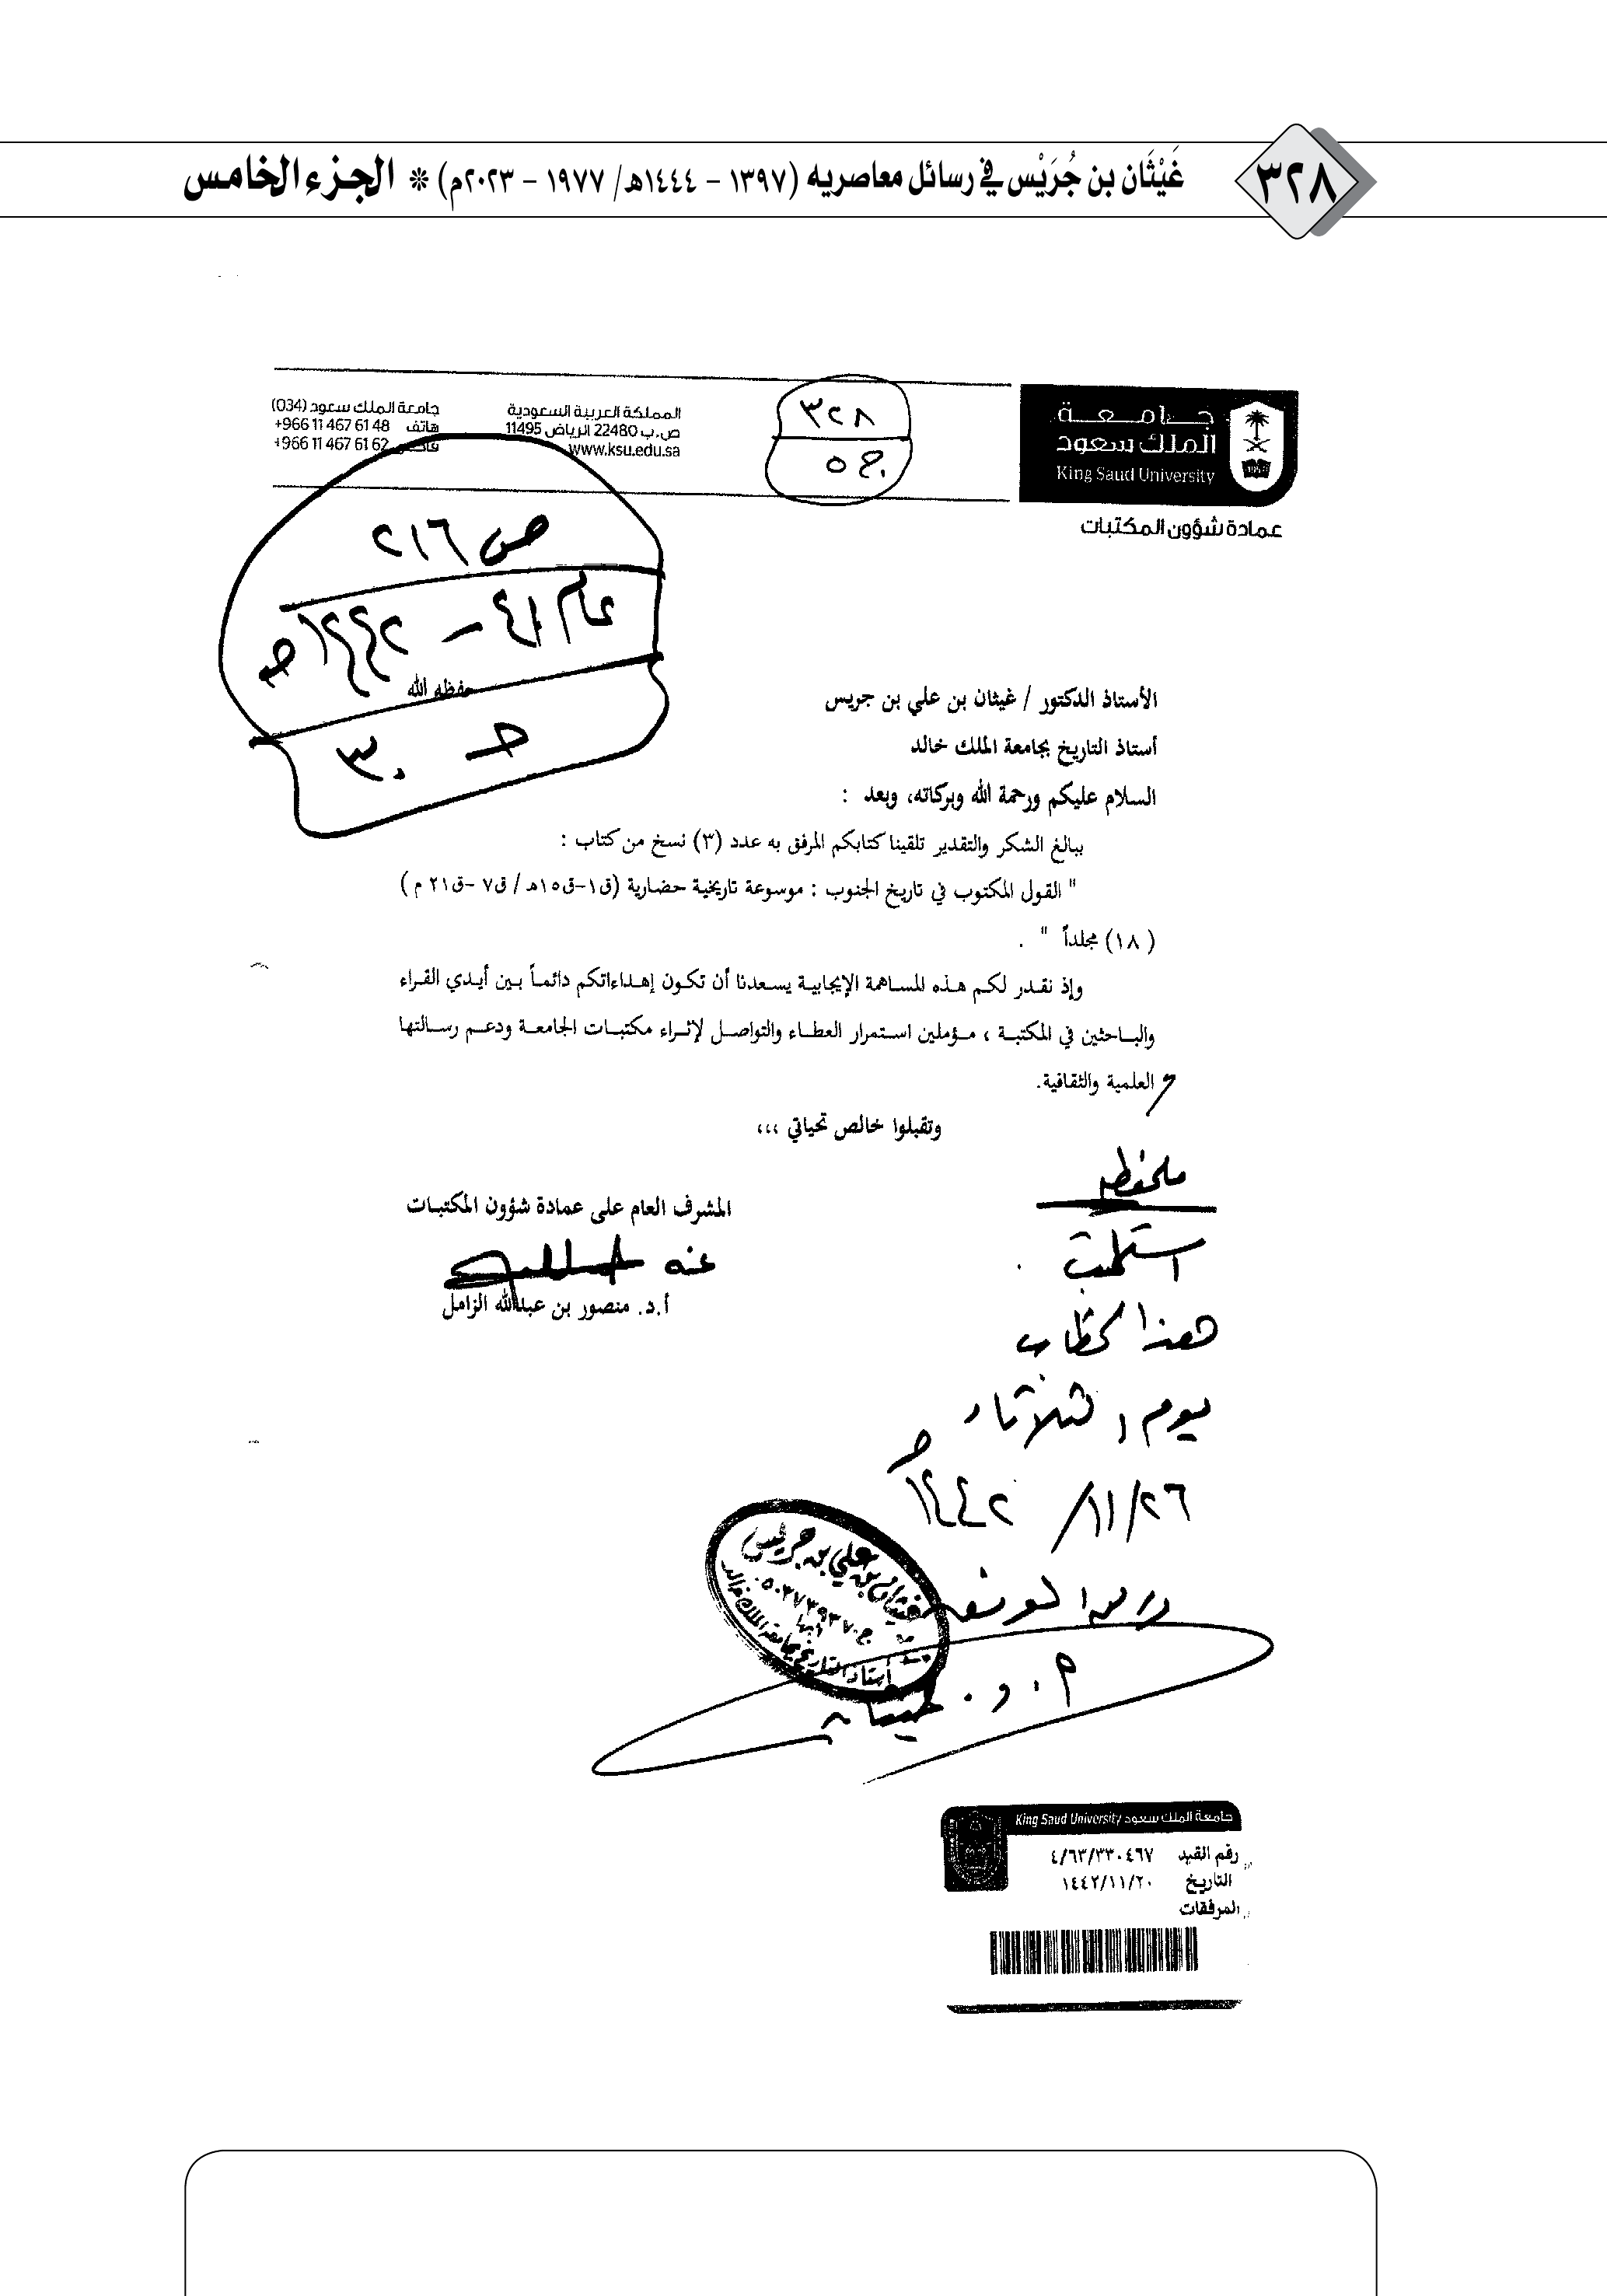 ٣٢٨
غَيْثَان بن جُرَيْس في رسائل معاصريه (١٣٩٧ - ١٤٤٤هـ/ ١٩٧٧ - ٢٠٢٣م) * الجزء الخامس
جامعة
الملك سعود
King Saud University
عمادة شؤون المكتبات
٣٢٨
ج ٥
المملكة العربية السعودية
ص.ب 22480 الرياض 11495
www.ksu.edu.sa
جامعة الملك سعود (034)
هاتف +966 11 467 61 48
فاكس +966 11 467 61 62
ص ٢١٦
عام ٤١ - ١٤٤٢هـ
حـ ٣٠
الأستاذ الدكتور / غيثان بن علي بن جريس حفظه الله
أستاذ التاريخ بجامعة الملك خالد
السلام عليكم ورحمة الله وبركاته، وبعد :
ببالغ الشكر والتقدير تلقينا كتابكم المرفق به عدد (٣) نسخ من كتاب :
" القول المكتوب في تاريخ الجنوب : موسوعة تاريخية حضارية (ق١-ق١٥هـ / ق٧ -ق٢١ م )
( ١٨) مجلداً " .
وإذ نقدر لكم هذه المساهمة الإيجابية يسعدنا أن تكون إهداءاتكم دائماً بين أيدي القراء
والباحثين في المكتبة ، مؤملين استمرار العطاء والتواصل لإثراء مكتبات الجامعة ودعم رسالتها
العلمية والثقافية.
وتقبلوا خالص تحياتي ،،،
المشرف العام على عمادة شؤون المكتبات
عنه
أ.د. منصور بن عبدالله الزامل
ملحوظة
استلمت
هذا الخطاب
يوم الثلاثاء
٢٦/ ١١/ ١٤٤٢هـ
غيثان بن علي بن جريس
أبها
أستاذ التاريخ بجامعة الملك خالد
جامعة الملك سعود King Saud University
رقم القيد ٤/٦٣/٣٣٠٤٦٧
التاريخ ١٤٤٢/١١/٢٠
المرفقات